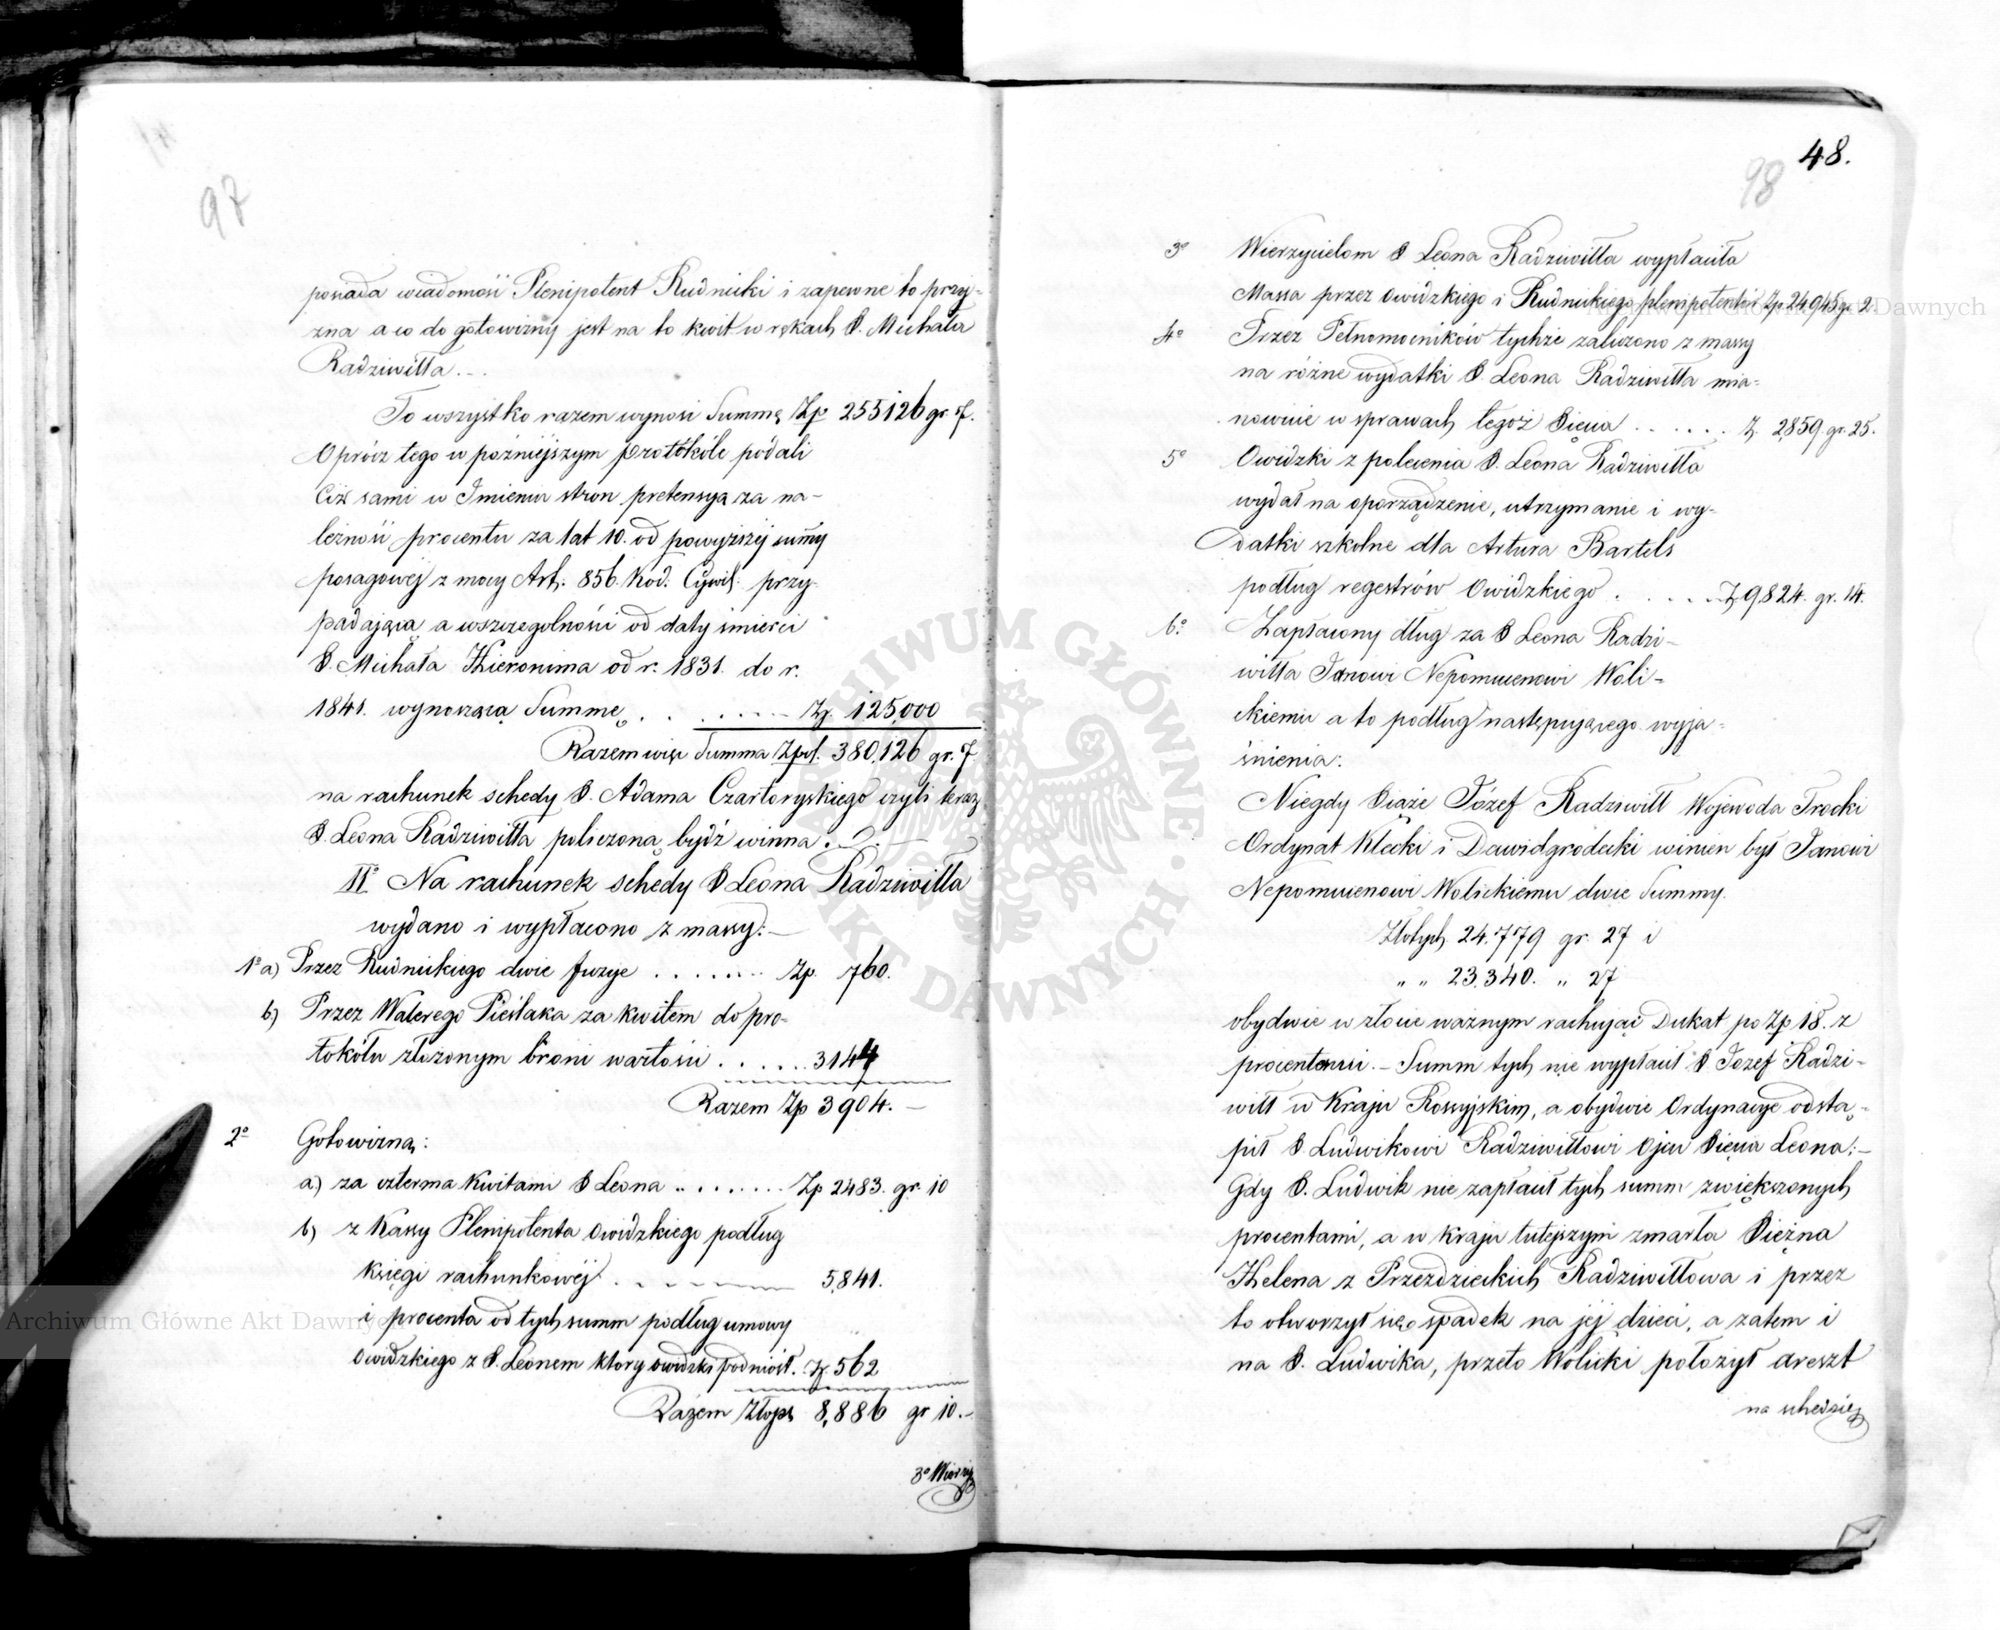 97
posiada wiadomość Plenipotent Rudnicki i zapewne to przy-
zna a co do gotowizny jest na to kwit w rękach X. Michała
Radziwiłła.—
To wszystko razem wynosi Summę Zp 255126 gr. 7.
Oprócz tego w późniejszym protokóle podali
Ciż sami w Imieniu stron pretensyą za na-
leżność procentu za lat 10. od powyższéj summy
posagowéj z mocy Art. 856. Kod. Cywil. przy-
padającą a wszczególności od daty śmierci
X. Michała Hieronima od r. 1831. do r.
1841. wynoszącą Summę . . . . . . . Zp. 125,000
Razem więc Summa Zpol. 380,126 gr. 7
na rachunek schedy X. Adama Czartoryskiego czyli teraz
X. Leona Radziwiłła policzoną bydź winna.
IIº Na rachunek schedy X Leona Radziwiłła
wydano i wypłacono z massy:—
1º a) Przez Rudnickiego dwie fuzye . . . . . . . Zp. 760.
b) Przez Walerego Pieślaka za kwitem do pro-
tokółu złożonym broni wartości . . . . . . 3144
Razem Zp 3904.—
2º Gotowizną:
a) za czterma kwitami X Leona . . . . . . . Zp 2483. gr. 10
b) z Kassy Plenipotenta Owidzkiego podług
księgi rachunkowéj . . . . . . 5,841.
i procenta od tych summ podług umowy
Owidzkiego z X. Leonem który Owidzki podniósł. Zp. 562
Razem Złotych 8,886 gr 10.—
3º Wierzy
48.
98
3º Wierzycielom X Leona Radziwiłła wypłaciła
Massa przez Owidzkiego i Rudnickiego plenipotentów Zp 24945 gr. 2.
4º Przez Pełnomocników tychże zaliczono z massy
na różne wydatki X. Leona Radziwiłła mia-
nowicie w sprawach tegoż Xięcia . . . . . . Zp. 2,859 gr. 25.
5º Owidzki z polecenia X. Leona Radziwiłła
wydał na oporządzenie, utrzymanie i wy-
datki szkolne dla Artura Bartels
podług regestrów Owidzkiego . . . . . Zp 9,824. gr. 14.
6º. Zapłacony dług za X Leona Radzi-
wiłła Janowi Nepomucenowi Woli-
ckiemu a to podług następującego wyja-
śnienia:
Niegdy Xiąże Józef Radziwiłł Wojewoda Trocki
Ordynat Klecki i Dawidgródecki winien był Janowi
Nepomucenowi Wolickiemu dwie Summy.
Złotych 24.779 gr. 27 i
„ „ 23.340. „ 27
obydwie w złocie ważnym rachując Dukat po Zp 18. z
procentami.— Summ tych nie wypłacił X Józef Radzi-
wiłł w Kraju Rossyjskim, a obydwie Ordynacye odstą-
pił X. Ludwikowi Radziwiłłowi Ojcu Xięcia Leona:—
Gdy X. Ludwik nie zapłacił tych summ zwiększonych
procentami, a w kraju tutejszym zmarła Xiężna
Helena z Przeździeckich Radziwiłłowa i przez
to otworzył się spadek na jéj dzieci, a zatem i
na X. Ludwika, przeto Wolicki położył areszt
na schedzie
Archiwum Główne Akt Dawnych
Archiwum Główne Akt Dawnych
ARCHIWUM GŁÓWNE AKT DAWNYCH